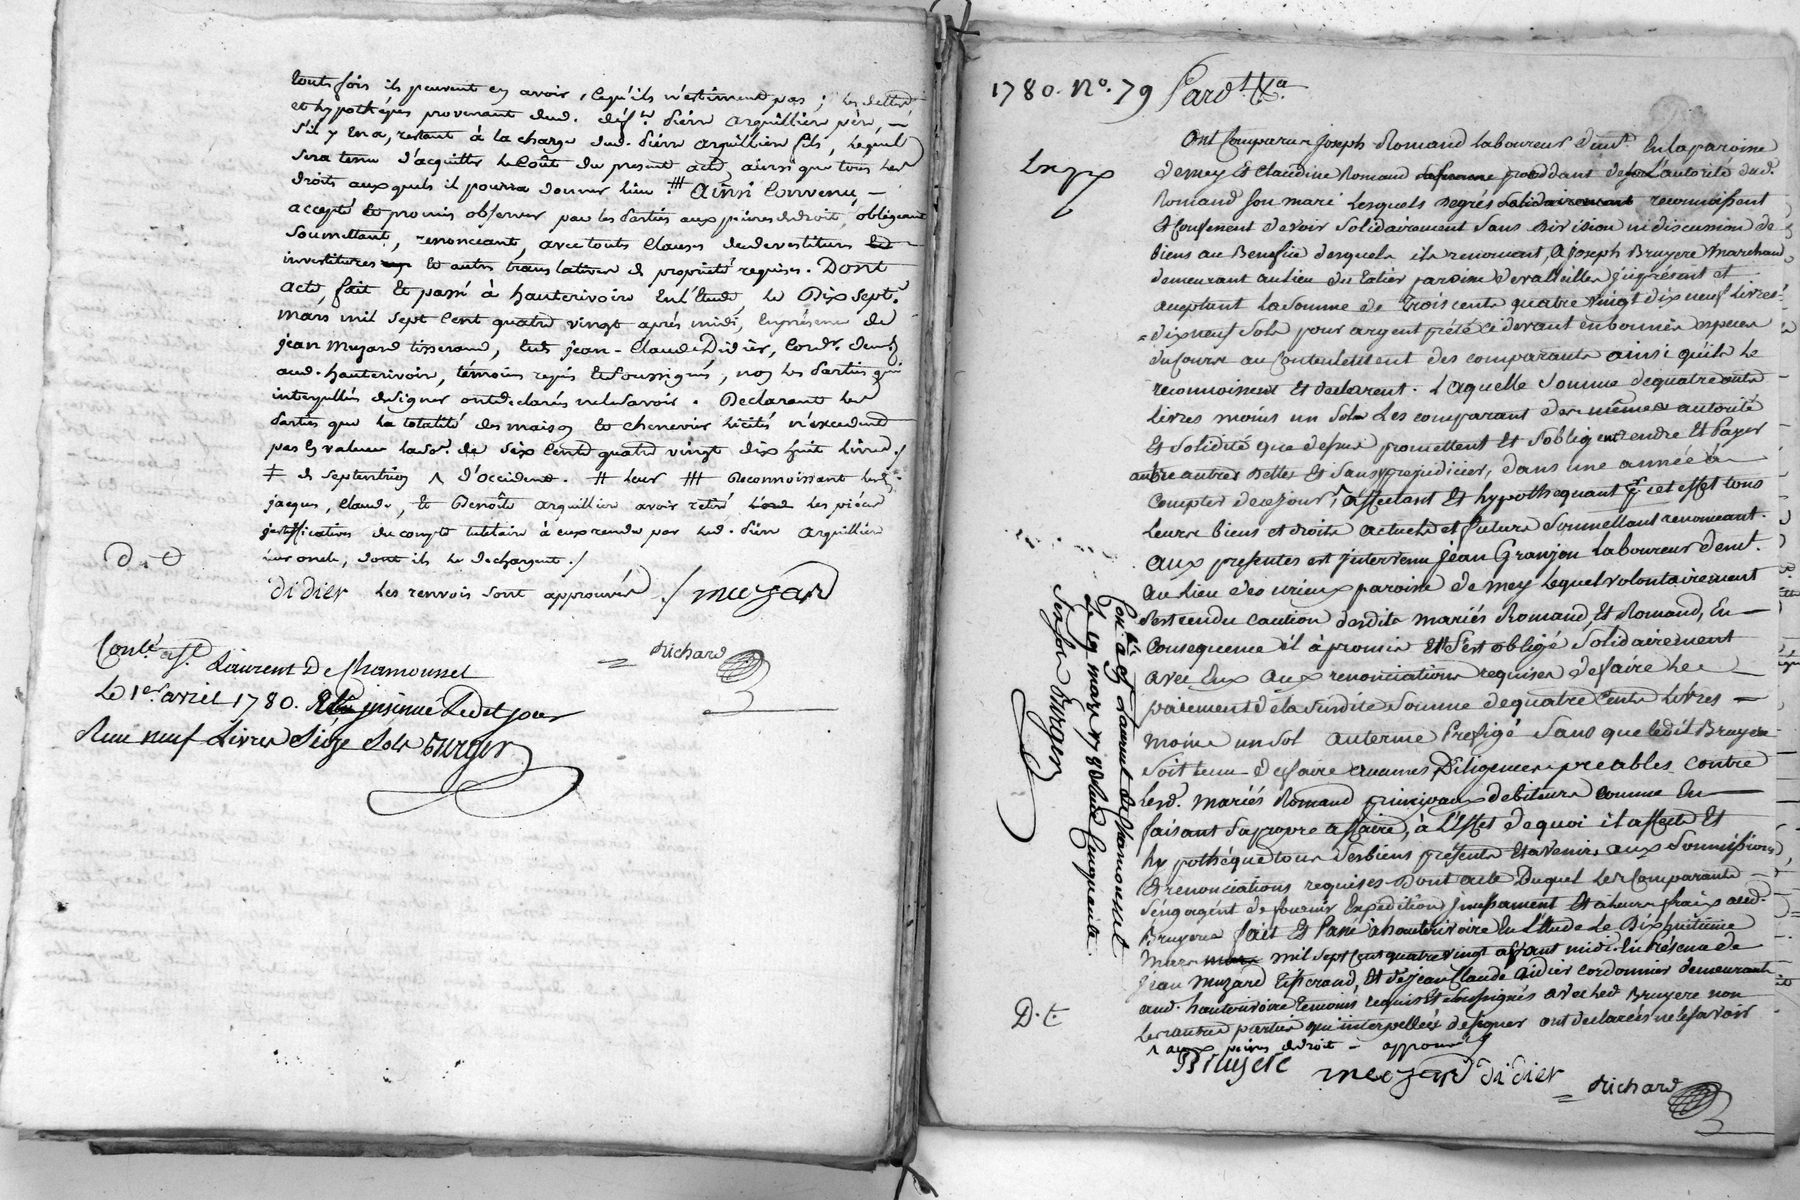 toutefois ils peuvent en avoir, ce qu'ils n'estiment pas ; les dettes
et hypothéques provenant dud. déft. pierre arquillière père, —
s'il y en a, restant à la charge dud. pierre arquillière fils, lequel
sera tenu d'acquitter le Coût du present acte, ainsi que tous les
droits auxquels il pourra donner lieu. # Ainsi Convenu, —
accepté et promis observer par les parties aux peines de droit, obligeant
soumettant, renonceant, avec touts clauses de devestiture
investitures et autres translatives de propriété requises. Dont
acte, fait et passé à hauterivoire En l'Etude, le Dix sept.
mars mil sept cent quatre vingt après midi, En présence de
jean muzard tisserand, et de jean-Claude Didier, Cordr. demt.
aud. hauterivoire, témoins requis et soussignés, non les parties qui
interpellés de signer ont déclarés ne le savoir. Declarant les
parties que la totalité des maison et chenevier licités n'excedent
pas en valeur la so. de six Cent quatre vingt dix huit livres /
‡ de septentrion ^ d'occident. # leur ### Reconnoissant lesd.
jacques, claude, et Benoîte arquillière avoir retiré les pièces
justifficatives du compte tutélaire à eux rendu par led. pierre arquillière
leur oncle, dont ils le dechargent. /
D. D
didier les renvois sont approuvés / muzard
Richard
Conlé. a St.
Laurent De Chamousset
Le 1er. avril 1780. insinué Ledet jour
Reçu neuf Livres Seize Sols Burger
1780. No. 79
Exp
Ont Comparus Joseph Romand laboureur demt. En la paroisse
de mey Et Claudine Romand sa femme procédant de l'autorité dud.
Romand son mari Lesquels de grés solidairement reconnoissent
Et Confessent devoir solidairement sans division ni discussion de
biens au Benefice desquels ils renoncent, A joseph Bruyere Marchand
demeurant au lieu du paroisse de valeille, icy présent et
acceptant la somme de Trois cents quatre vingt dix neuf Livres
= dix neuf sols pour argent prêté ci devant en bonnes especes
du cours au Contentement des comparants ainsi qu'ils le
reconnoissent Et declarent. Laquelle somme de quatre cents
livres moins un sol Les comparant de même autorité
Et solidité que dessus promettent Et s'obligent rendre Et Payer
entre autres dettes Et sans prejudicier, dans une année à
Compter de ce jour, ^ affectant Et hypothequant pr. cet effet tous
leurs biens et droits actuels et futurs soumettant renonceant.
aux presentes est intervenu jean Granjon laboureur demt.
au lieu des paroisse de mey Lequel volontairement
s'est rendu caution desdits mariés Romand, Et Romand, En
Consequence il à promis Et s'est obligé Solidairement
avec Eux aux renonciations requises de faire Le
paiement de la susdite somme de quatre Cents Livres —
moins un sol au terme Prefigé sans que ledit Bruyere
soit tenu de faire aucunes Diligences preables contre
lesd. mariés Romand principaux debiteurs comme En
faisant sa propre affaire, à L'effet de quoi il affecte Et
hypothéque tous ses biens présents Et à venir, aux soumissions
Et renonciations requises Dont acte Duquel Les Comparants
s'engagent de fournir Expedition incessament Et à leurs frais aud.
Bruyere fait Et Passé à hauterivoire En L'Etude Le Dix huitieme
Mars mil sept cent quatre vingt avant midi. En présence de
jean Muzard Tisserand, Et de jean Claude didier cordonnier demeurants
aud. hauterivoire temoins requis Et soussignés avec led. Bruyere non
les autres parties qui interpellées de signer ont declarés ne le savoir
^ aux peines de droit - approuvé
D. t.
Bruyere muzard didier
Richard
Con. à St Laurent de Chamousset
Le 19 mars 1780 Reçu Cinquante
Burger